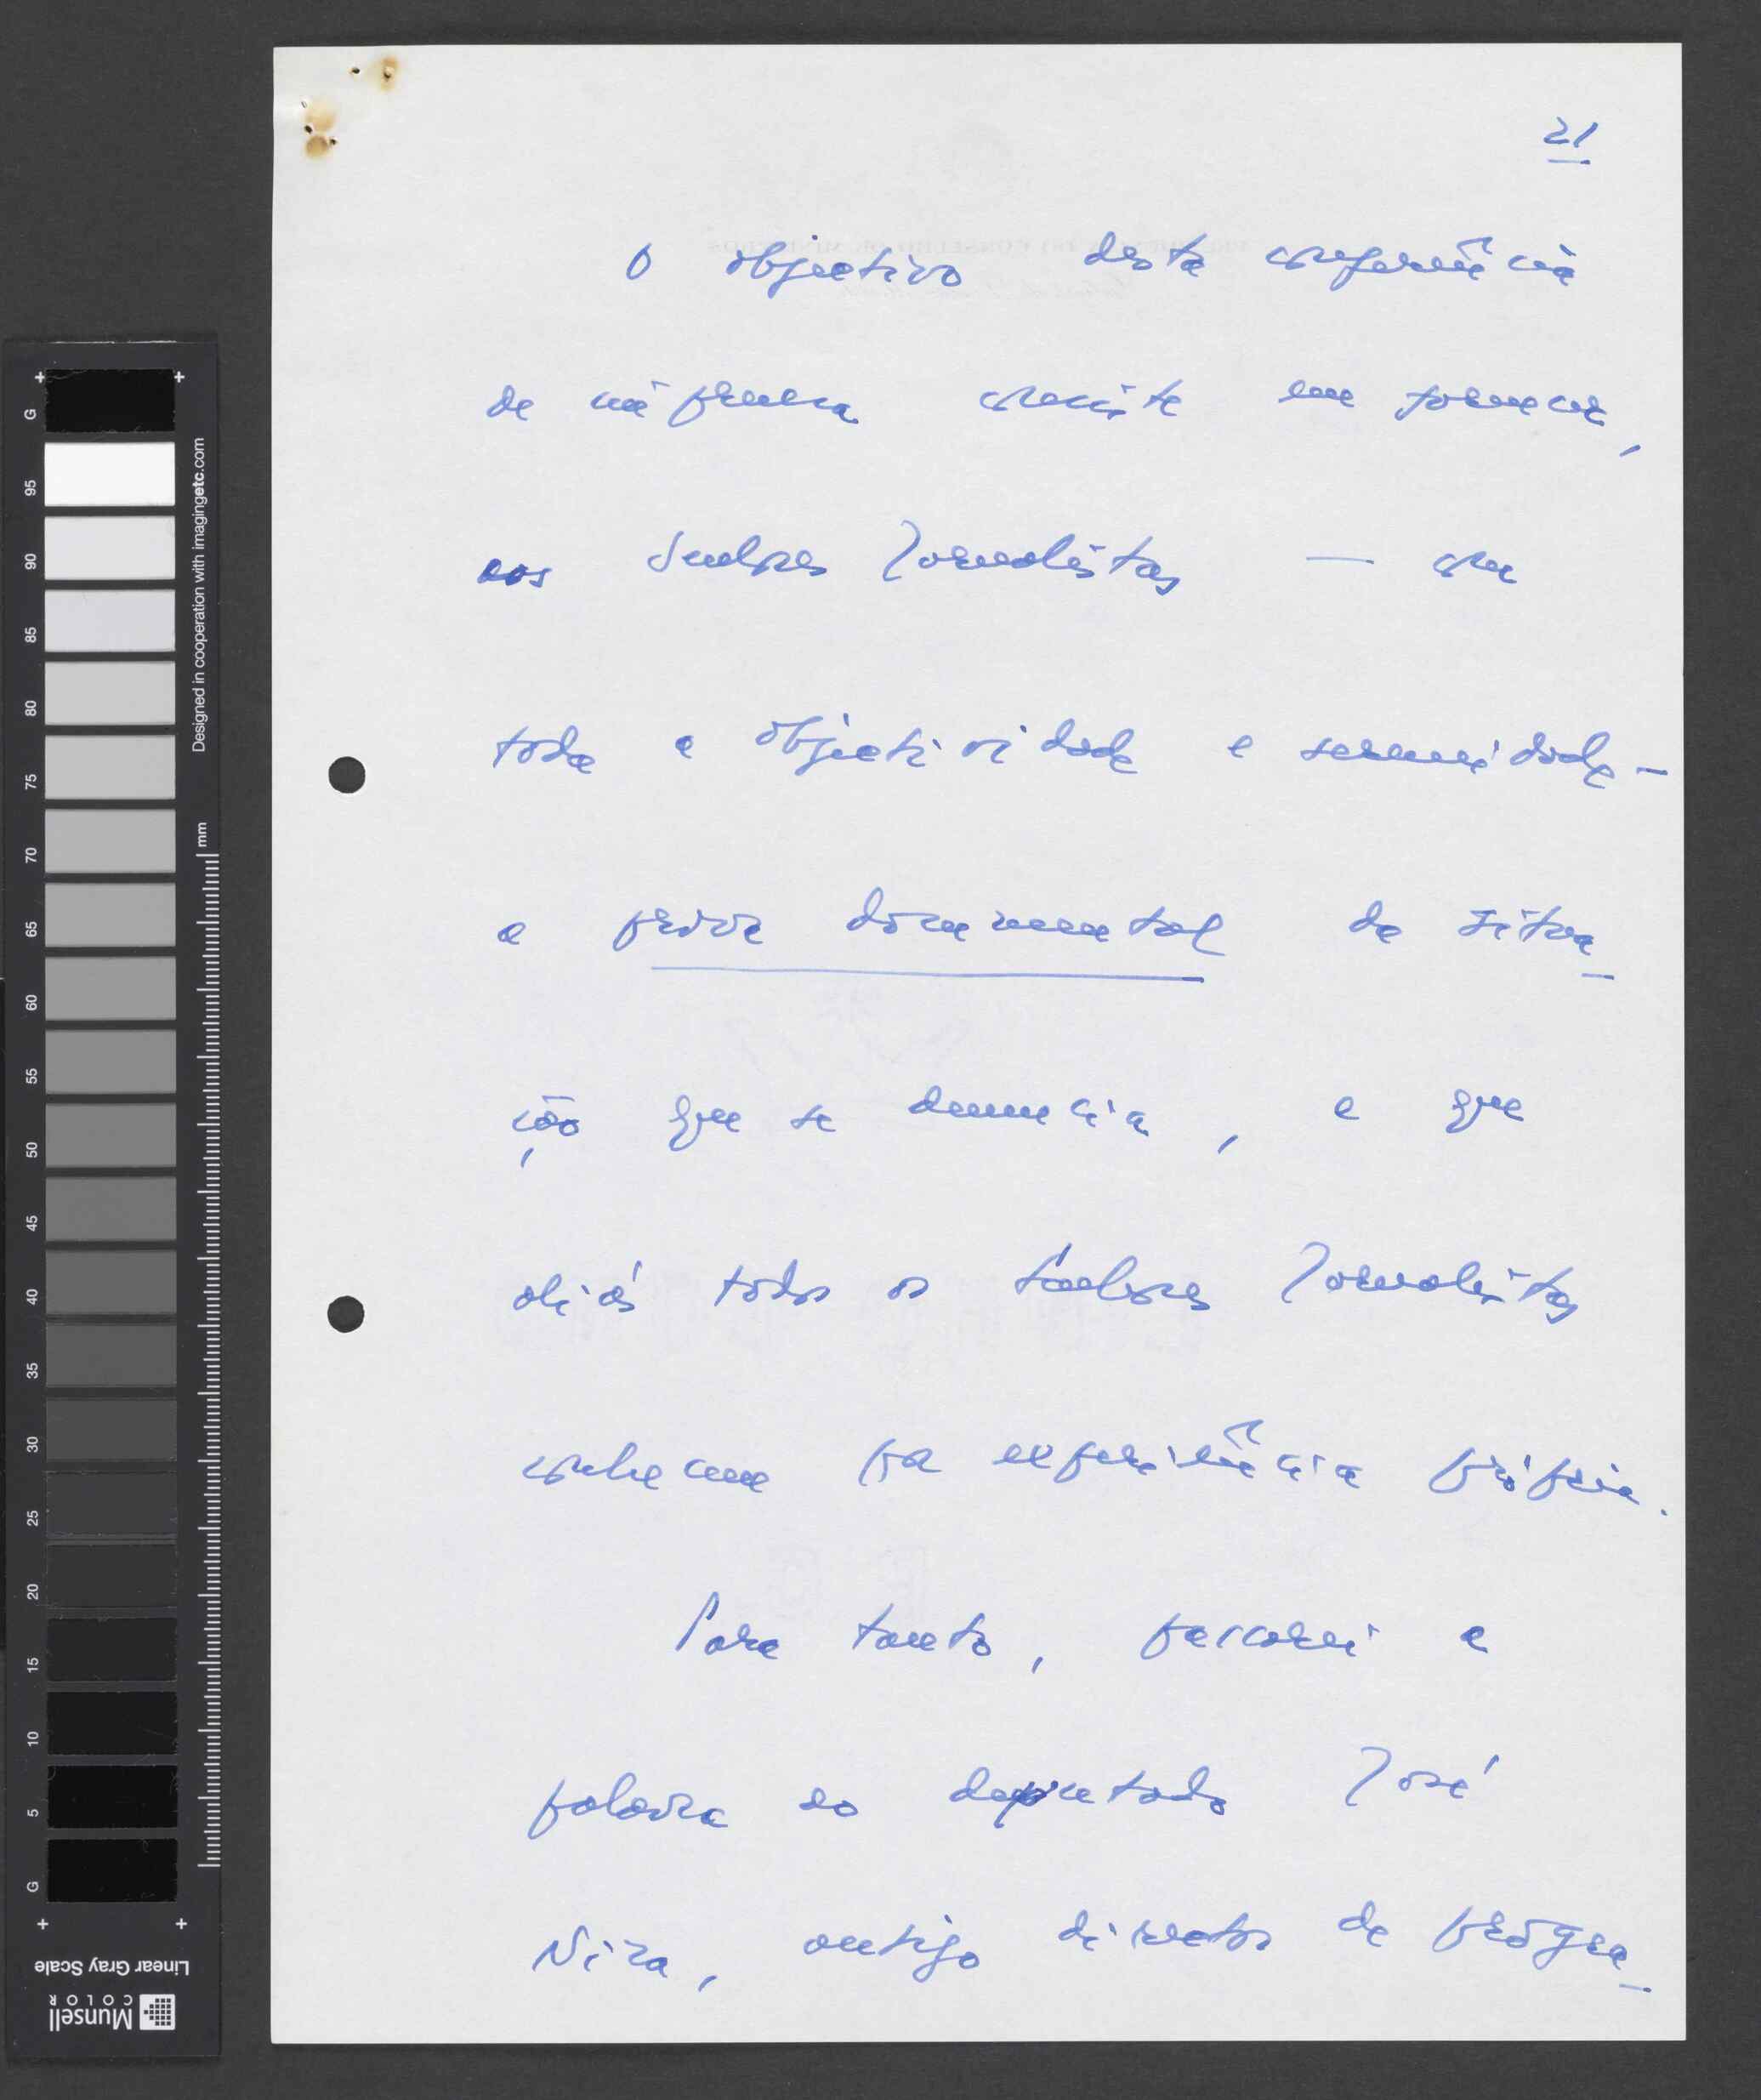 21
O objectivo desta conferência
de imprensa consiste em fornecer,
aos Senhores Jornalistas — com
toda a objectividade e serenidade —
a prova documental da situa-
ção que se denuncia, e que
aliás todos os Senhores Jornalistas
conhecem por experiência própria.
Para tanto, passarei a
palavra ao deputado José
Niza, antigo director de progra-
G
95
90
85
80
75
70
65
60
55
50
45
40
35
30
25
20
15
10
5
G
Designed in cooperation with imagingetc.com
mm
Linear Gray Scale
Munsell
COLOR